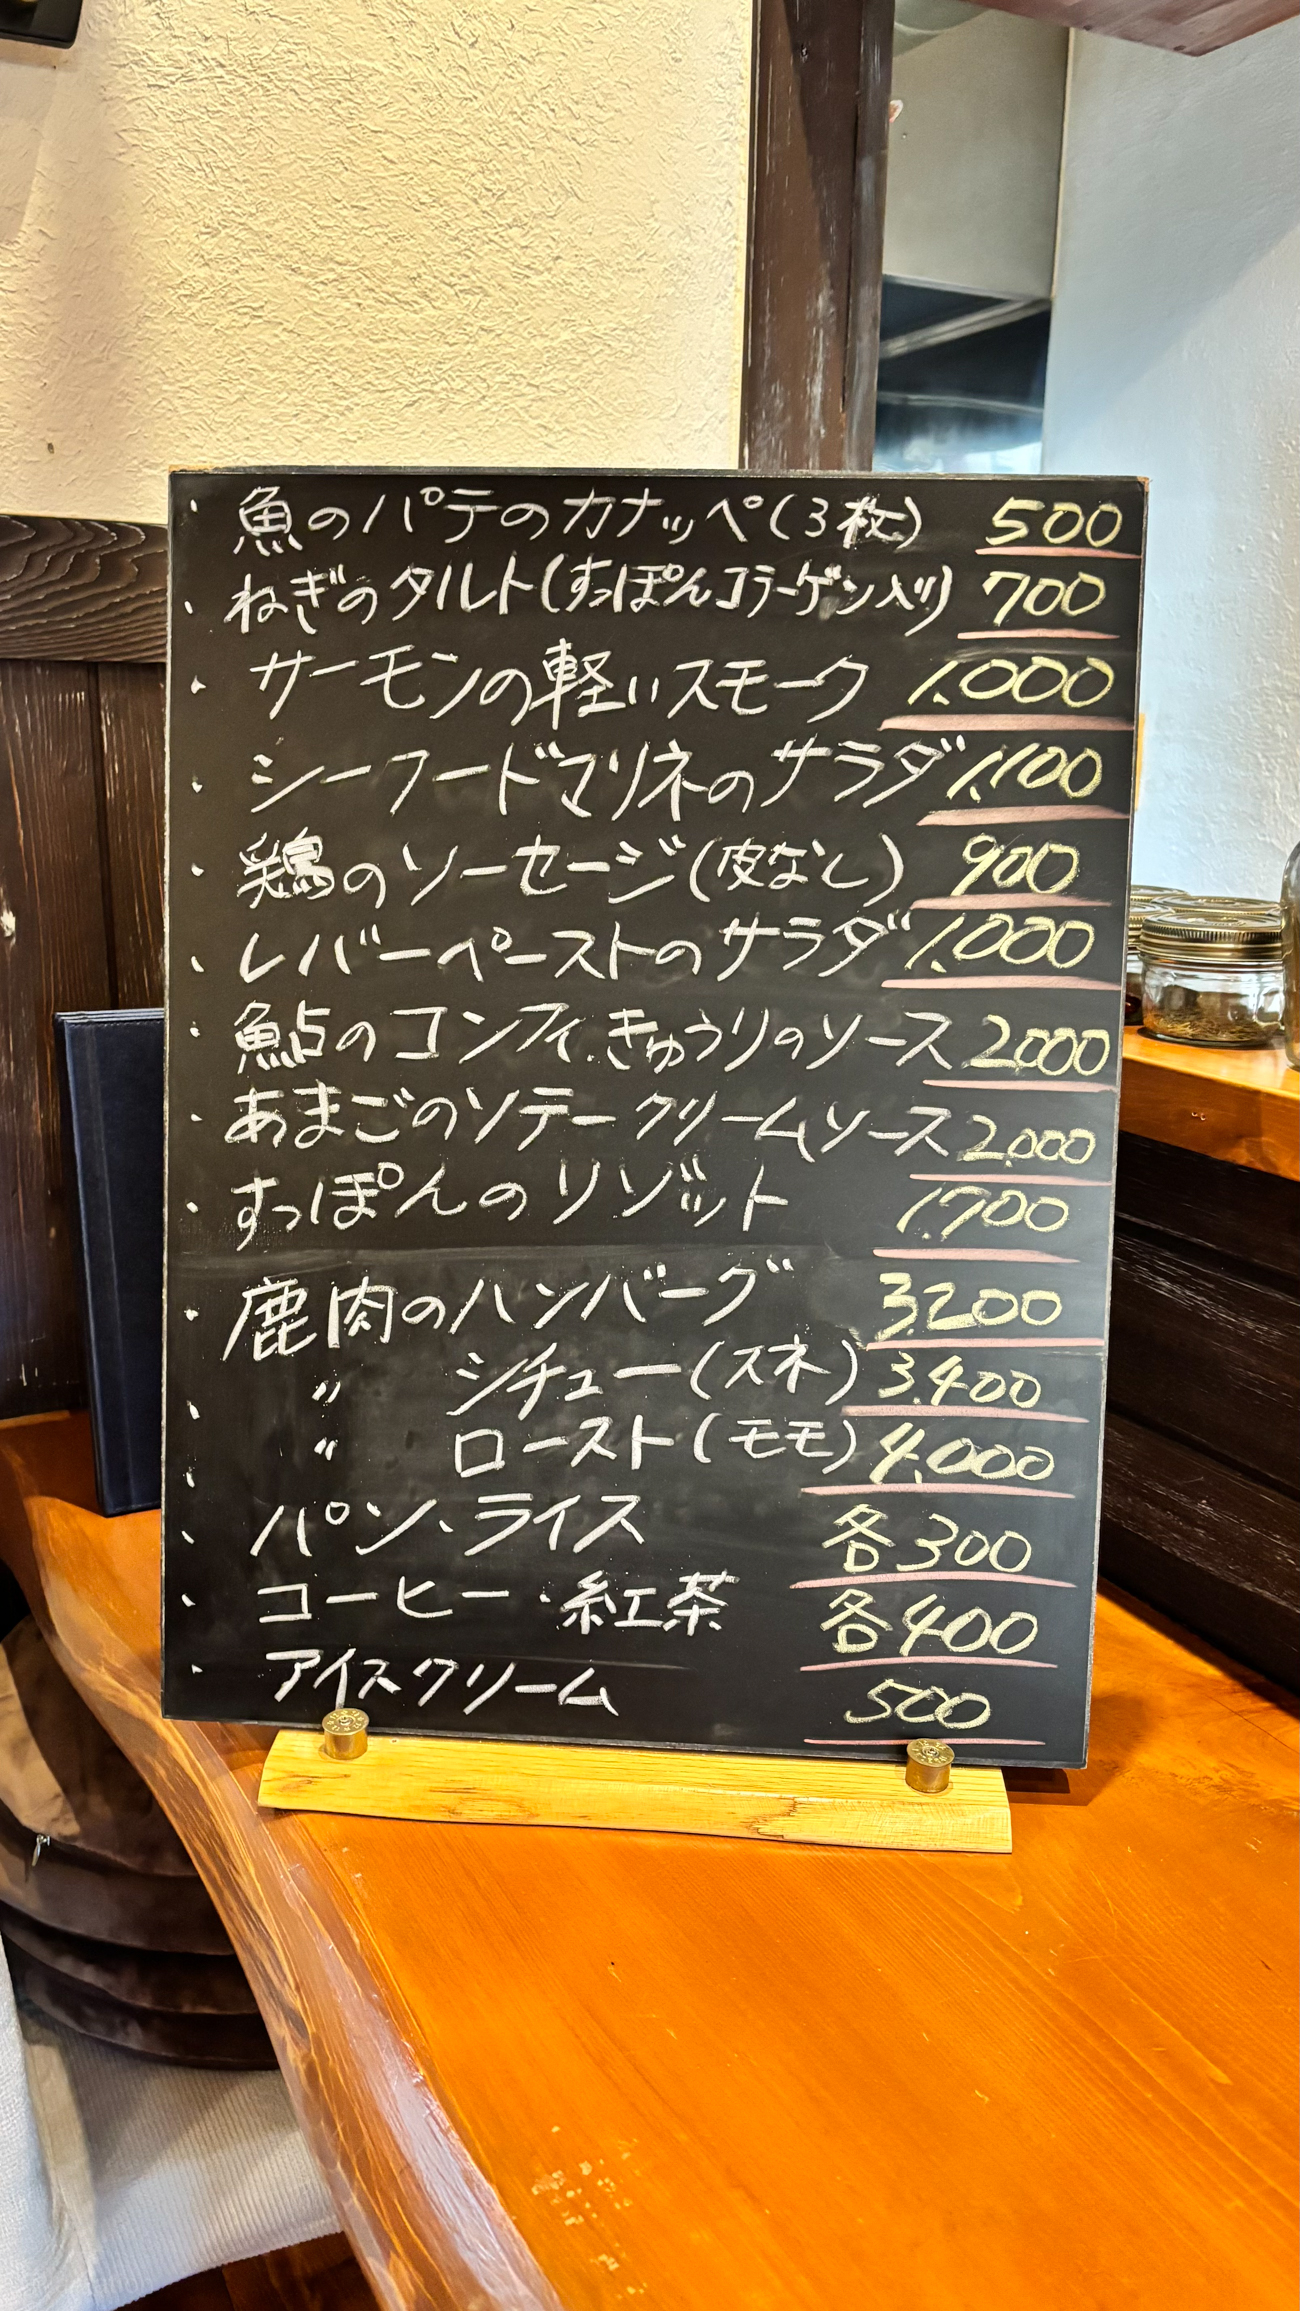 ・魚のパテのカナッペ(3枚) 500
・ねぎのタルト(すっぽんコラーゲン入り) 700
・サーモンの軽いスモーク 1.000
・シーフードマリネのサラダ 1.100
・鶏のソーセージ(皮なし) 900
・レバーペーストのサラダ 1.000
・鮎のコンフィ.きゅうりのソース 2.000
・あまごのソテークリームソース 2.000
・すっぽんのリゾット 1.700
・鹿肉のハンバーグ 3.200
・〃 シチュー(スネ) 3.400
・〃 ロースト(モモ) 4.000
・パン、ライス 各300
・コーヒー・紅茶 各400
・アイスクリーム 500